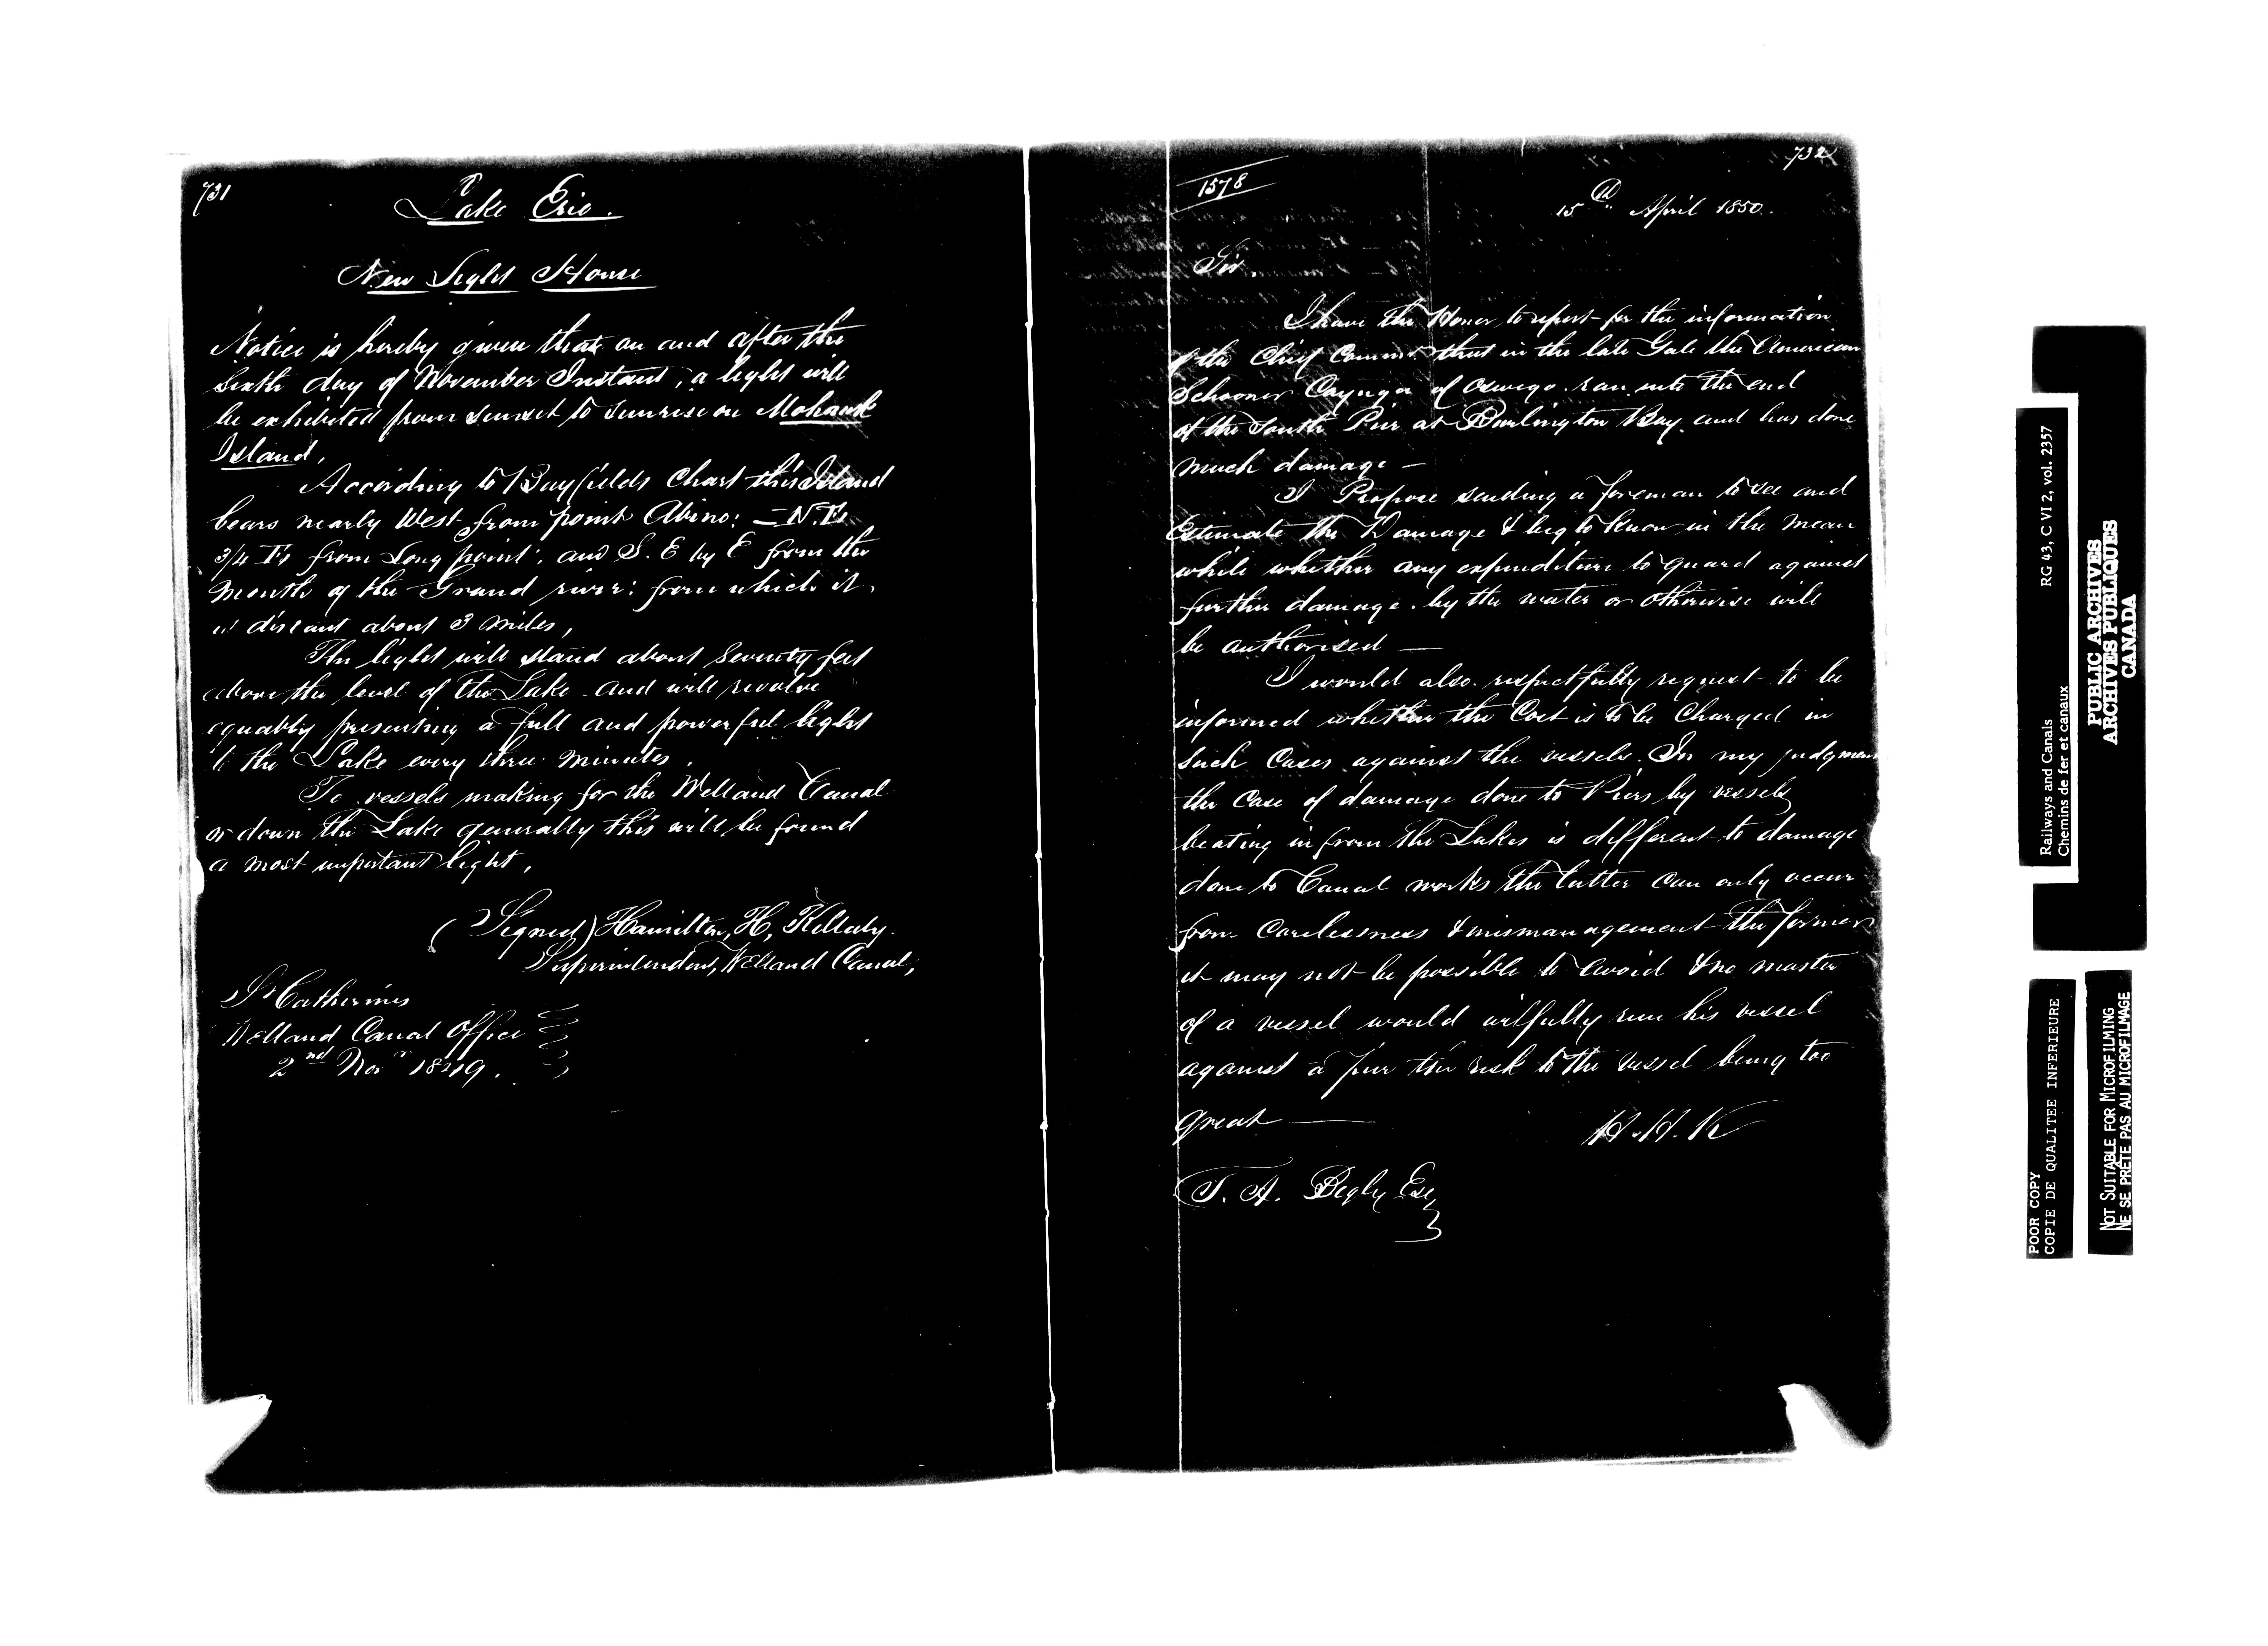 731
Lake Erie.
New Light House
Notice is hereby given that on and after the
Sixth day of November Instant, a light will
be exhibited from sunset to sunrise on Mohawk
Island,
According to Bayfields Chart this Island
bears nearly West from point Abino: – N. E.
3/4 E. from Long point; and S. E by E from the
Mouth of the Grand river: from which it
is distant about 3 miles,
The light will stand about Seventy feet
above the level of the Lake and will revolve
equably presenting a full and powerful light
to the Lake every three minutes.
To vessels making for the Welland Canal
or down the Lake generally this will be found
a most important light,
(Signed) Hamilton, H, Killaly.
Superintendent, Welland Canal,
St Catherines
Welland Canal Office
2nd Novr 1849.
732
1578
15th April 1850.
Sir
I have the Honor to report for the information
of the Chief Commr. that in the late Gale the American
Schooner Cayuga of Oswego ran into the end
of the South Pier at Burlington Bay and has done
much damage —
I Propose sending a foreman to see and
Estimate the Damage & beg to know in the mean
while whether any expenditure to guard against
further damage by the water or otherwise will
be authorised —
I would also respectfully request to be
informed whether the Cost is to be Charged in
Such Cases against the vessels. In my judgment
the Case of damage done to Piers by vessels
beating in from the Lakes is different to damage
done to Canal works the latter can only occur
from Carelessness & mismanagement the former
it may not be possible to avoid & no master
of a vessel would wilfully run his vessel
against a pier the risk to the vessel being too
great —
H. H. K
T. A. Begly Esq
Railways and Canals RG 43, C VI 2, vol. 2357
Chemins de fer et canaux
PUBLIC ARCHIVES
ARCHIVES PUBLIQUES
CANADA
POOR COPY
COPIE DE QUALITEE INFERIEURE
NOT SUITABLE FOR MICROFILMING
NE SE PRÊTE PAS AU MICROFILMAGE